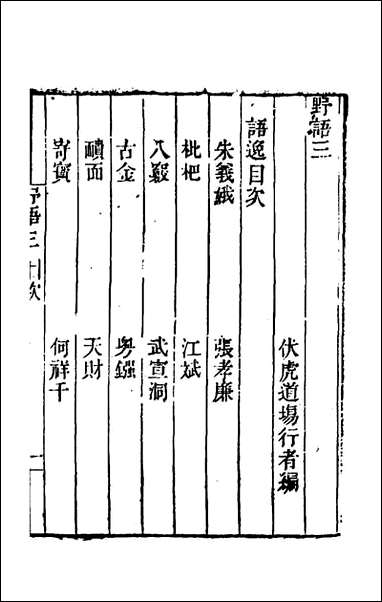 野語三
伏虎道場行者編
語逸目次
朱義鵝 張孝廉
枇杷 江斌
入竅 武宣洞
古金
靧面 天財
寄寶 何祥千
野語三 目次 一